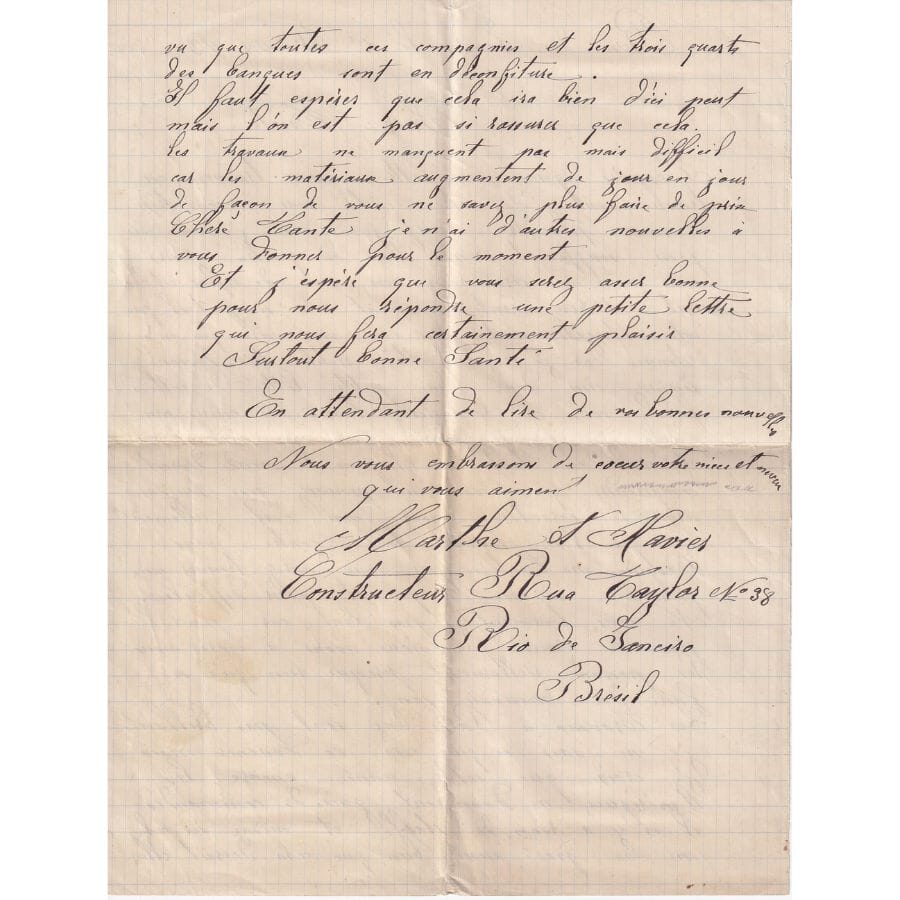 vu que toutes ces compagnies et les trois quarts
des banques sont en déconfiture.
Il faut espérer que cela ira bien d'ici peut
mais l'ón est pas si rassurer que cela.
les travaux ne manquent pas mais difficil
car les matériaux augmentent de jour en jour
de façon de vous ne savez plus faire de prix
Chéré Tante je n'ai d'autres nouvelles à
vous donner pour le moment
Et j'éspére que vous serez asser bonne
pour nous répondre une petite lettre
qui nous fera certainement plaisir
Surtout bonne Santé
En attendant de lire de vos bonnes nouvelles
Nous vous embrassons de coeur votre niece et neveu
qui vous aiment
Marthe et Xavier
Constructeur Rua Taylor No 38
Rio de Janeiro
Brésil